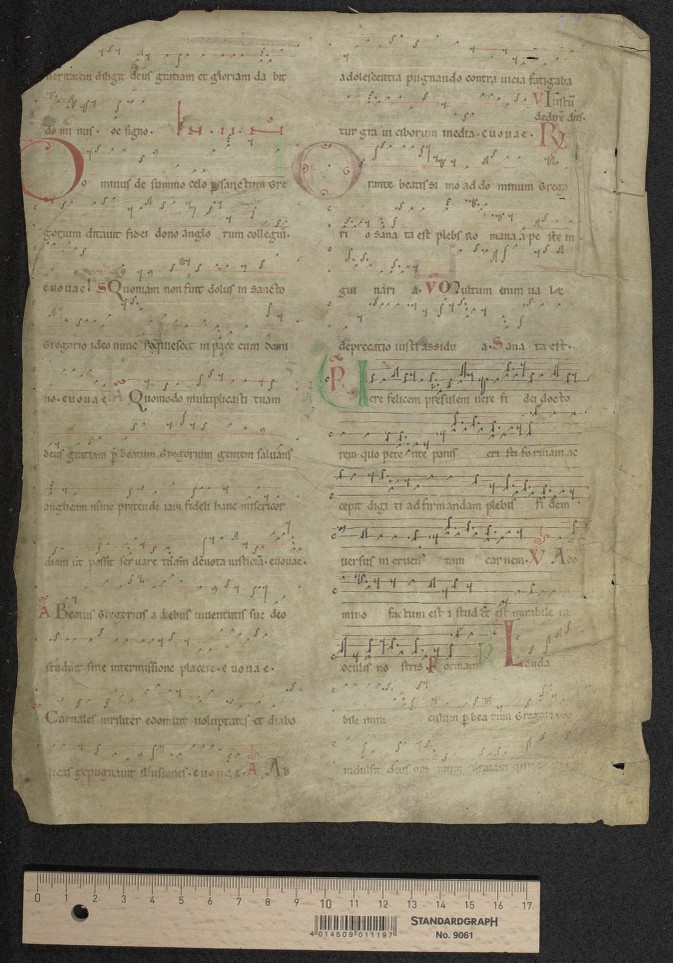 ueritatem diligit deus gratiam et gloriam da bit
do mi nus. oc signo. In. iii. n
Do minus de summo celo p sanctum Gre
gorium ditauit fidei dono anglo rum collegiū.
euouae. S Quoniam non fuit dolus in sancto
Gregorio ideo nunc requiescit in pace cum domi
no. euouae. A Quomodo multiplicasti tuam
deus gratiam p beatum Gregorium gentem saluans
anglicam nunc pretende iam fideli hanc misericor
diam ut possit seruare tuam deuota iusticiā. euouae.
A Beatus Gregorius a diebus iuuentutis sue deo
studuit sine intermissione placere. euouae.
Carnales uiriliter edomuit uoluptates et diabo
licas expugnauit illusiones. euouae. A Ab
adolescentia pugnando contra uicia fatigaba
V Iustū
deduxᷓ dn̄s.
tur gra in ciborum inedia. euouae. R
O rante beatissi mo ad do minum Grego
ri o sana ta est plebs Ro mana a pe ste in
gui nari a. V Multum enim ua let
deprecatio iusti assidu a. Sana ta est.
R Vere felicem presulem uere fi dei docto
rem quo pete nte panis cri sti formam ac
cepit digi ti ad firmandam plebis fi dem
uersus in cruen tam carnem. V A do
mino factum est i stud et est mirabile in
oculis no stris. Formam R Lauda
bile mira culum p bea tum Gregori
indulsit deus
0 1 2 3 4 5 6 7 8 9 10 11 12 13 14 15 16 17
STANDARDGRAPH
4 014509 011197
No. 9061